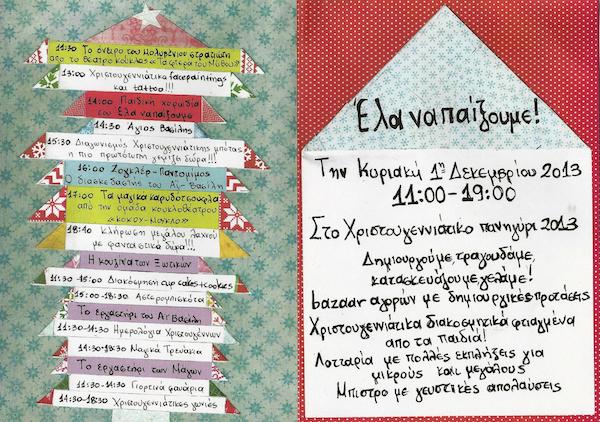 11:30 Το όνειρο του Μολυβένιου στρατιώτη
από το θέατρο κούκλας «Τα φτερά του Μύθου»
13:00 Χριστουγεννιάτικα facepaintings
και tattoo!!!
14:00 Παιδική χορωδία
του Έλα να παίξουμε
14:30 Άγιος Βασίλης
15:30 Διαγωνισμός Χριστουγεννιάτικης μπότας
η πιο πρωτότυπη γεμίζει δώρα!!!
16:00 Ζογκλέρ-Παντομίμος
Ο διασκεδαστής του Αϊ-Βασίλη
17:00 Τα μαγικά καρυδότσουφλα
από την ομάδα κουκλοθέατρου
«ΚΟΚΟΥ-ΜΟΥΚΛΟ»
18:10 Κλήρωση μεγάλου λαχνού
με φανταστικά δώρα!!!
Η κουζίνα των Ξωτικών
11:30-15:00 Διακόσμηση cup cakes+cookies
15:00-18:30 Αστερομπισκότα
Το εργαστήρι του Αϊ Βασίλη
11:30-14:30 Ημερολόγια Χριστουγέννων
14:30-18:30 Μαγικά Τρενάκια
Το εργαστήρι των Μάγων
11:30-14:30 Γιορτινά φανάρια
14:30-18:30 Χριστουγεννιάτικες γωνιές
Έλα να παίξουμε!
Την Κυριακή 1η Δεκεμβρίου 2013
11:00-19:00
Στο Χριστουγεννιάτικο πανηγύρι 2013
Δημιουργούμε, τραγουδάμε,
κατασκευάζουμε, γελάμε!
bazaar αγορών με δημιουργικές προτάσεις
Χριστουγεννιάτικα διακοσμητικά φτιαγμένα
από τα παιδιά!
Λοταρία με πολλές εκπλήξεις για
μικρούς και μεγάλους
Μπιστρο με γευστικές απολαύσεις